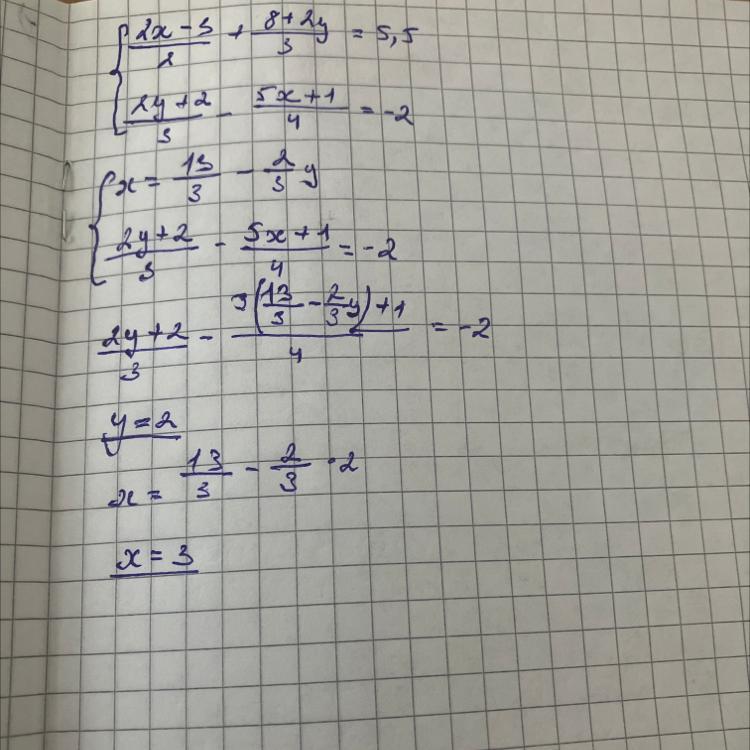 { (2x - 3)/2 + (8 + 2y)/3 = 5,5
(2y + 2)/3 - (5x + 1)/4 = -2
{ x = 13/3 - 2/3 y
(2y + 2)/3 - (5x + 1)/4 = -2
(2y + 2)/3 - (5(13/3 - 2/3 y) + 1)/4 = -2
y = 2
x = 13/3 - 2/3 · 2
x = 3